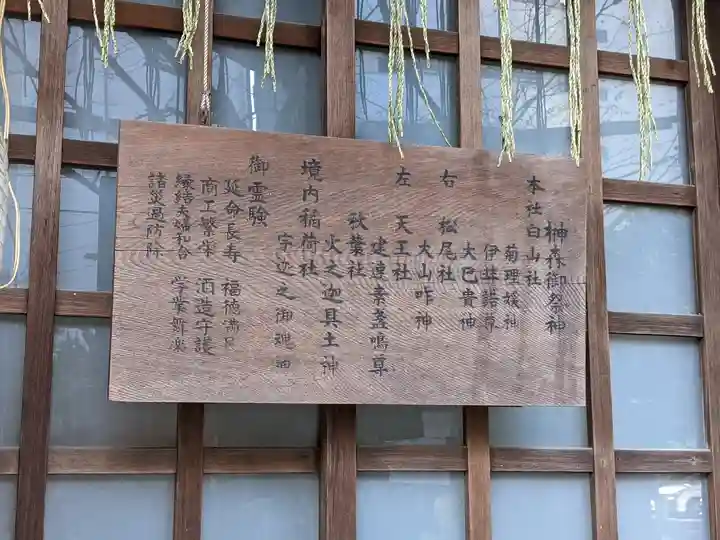 榊森御祭神
本社白山社
菊理媛神
伊弉諾尊
大己貴神
右 松尾社
大山咋神
左 天王社
建速素盞鳴尊
秋葉社
火之迦具土神
境内稲荷社
宇迦之御魂
御霊験
延命長寿 福徳満足
商工繁栄 酒造守護
縁結夫婦和合 学業舞楽
諸災過防除